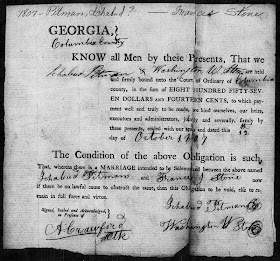 1807 - Pitman, Ichabud ? Frances Stone
GEORGIA,
Columbia County
KNOW all Men by these Presents, That we
Ichabud Pitman & Washington W. Stone are held
and firmly bound unto the Court of Ordinary of Columbia
county, in the sum of EIGHT HUNDRED FIFTY-SEV-
EN DOLLARS and FOURTEEN CENTS, to which payment
well and truly to be made, we bind ourselves, our heirs,
executors, administrators, jointly and severally, firmly by
these presents, sealed with our seals and dated this 12
day of October 1807
The Condition of the above Obligation is such,
That, whereas there is a MARRIAGE intended to be Solemnized between the above named
Ichabud Pitman and Frances Stone now
if there be no lawful cause to obstruct the same, then this Obligation to be void, else to re-
main in full force and virtue.
Signed, Sealed and Acknowledged,
in Presence of
Ichabud Pitman
A. Crawford
Clk
Washington W Stone